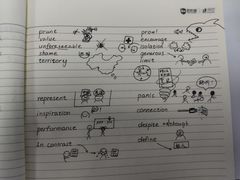 prune
value
unforeseeable
shame
territory
prowl
encourage
isolation
generous
limit
represent
inspiration
performance
In contrast
panic
connection
despite =though
define